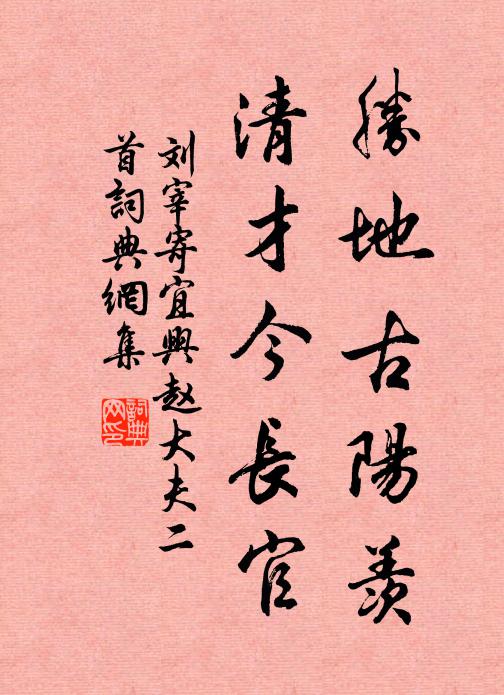 勝地古陽羨
清才今長官
刘宰寄宜興赵大夫二
首詞典網集
詞典
网印